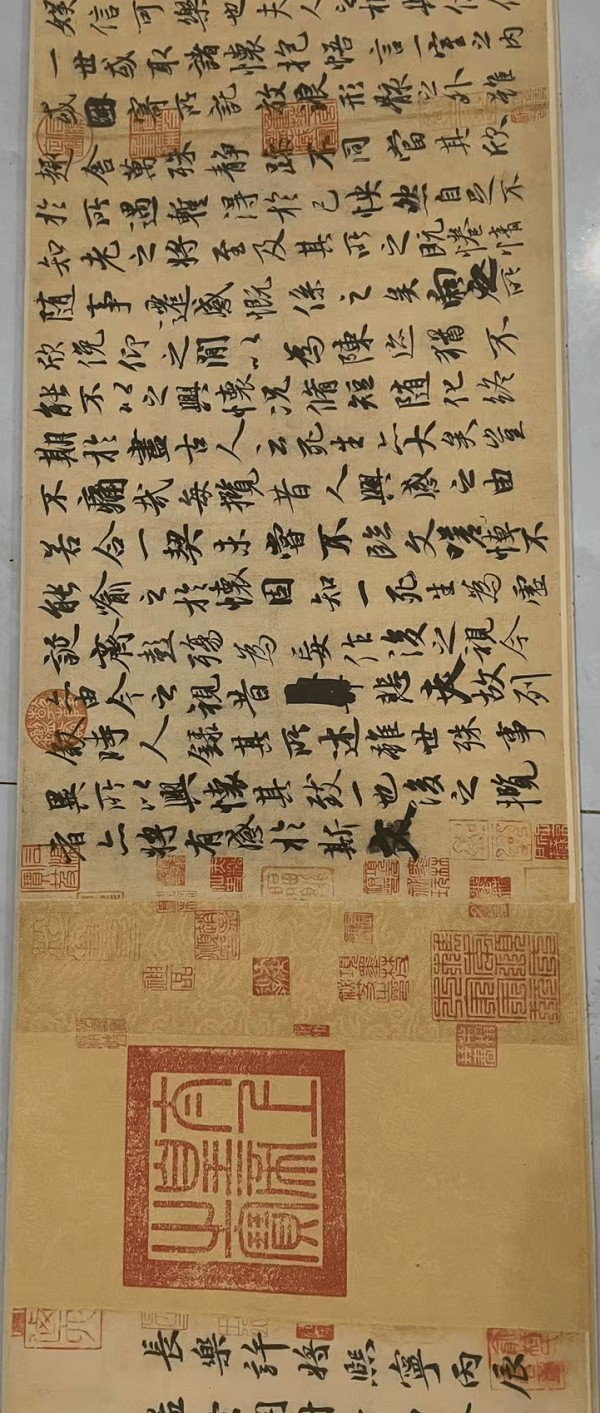 娛信可樂也夫人之相與
一世或取諸懷抱悟言一室之內
或因寄所託放浪形骸之外雖
趣舍萬殊靜躁不同當其欣
於所遇暫得於己怏然自足不
知老之將至及其所之既惓情
隨事遷感慨係之矣向之所
欣俛仰之閒以為陳迹猶不
能不以之興懷況脩短隨化終
期於盡古人云死生亦大矣豈
不痛哉每攬昔人興感之由
若合一契未嘗不臨文嗟悼不
能喻之於懷固知一死生為虛
誕齊彭殤為妄作後之視今
亦由今之視昔悲夫故列
敘時人錄其所述雖世殊事
異所以興懷其致一也後之攬
者亦將有感於斯文
太上皇帝之寶
長樂許將熙寧丙辰